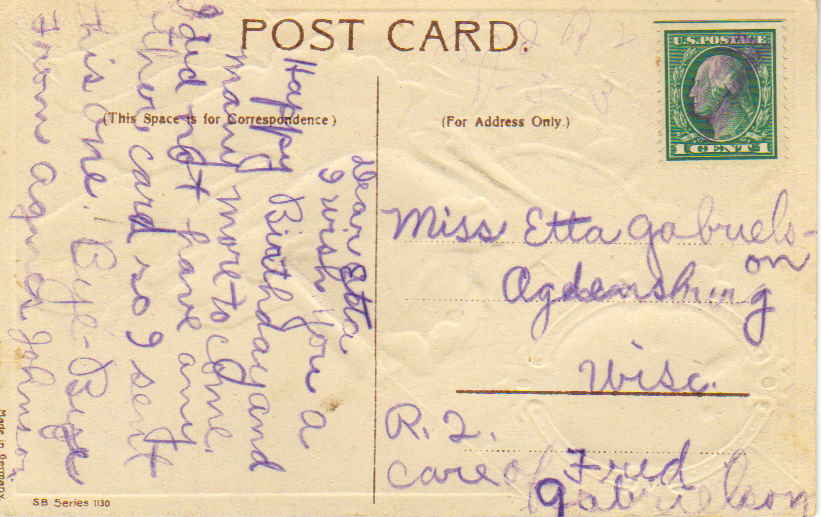 POST CARD.
U.S. POSTAGE
1 CENT 1
(This Space is for Correspondence)
(For Address Only.)
Dear Etta
I wish you a
Happy Birthday and
many more to come.
I did not have any
other card so I sent
this one. Bye-Bye
From Agnes Johnson
Miss Etta Gabriels-
on
Ogdensburg
Wisc.
R. 2.
care of Fred
Gabrielson
SB Series 1130
Made in Germany